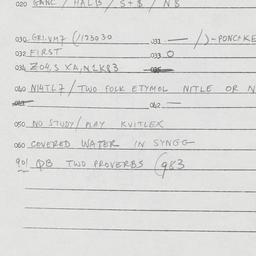 020 GANC / HALB / S+$ / N$
030 GRI.VM7 (/1173030 031 — /)-PONCAKE
032 FIRST 033 O
034 ZO4,S XA,N1K83 035
040 N14TL7 / TWO FOLK ETYMOL NITLE OR N
041 042 —
050 NO STUDY / MAY KVITLEX
060 COVERED WATER IN SYNGG
901 QB TWO PROVERBS (983